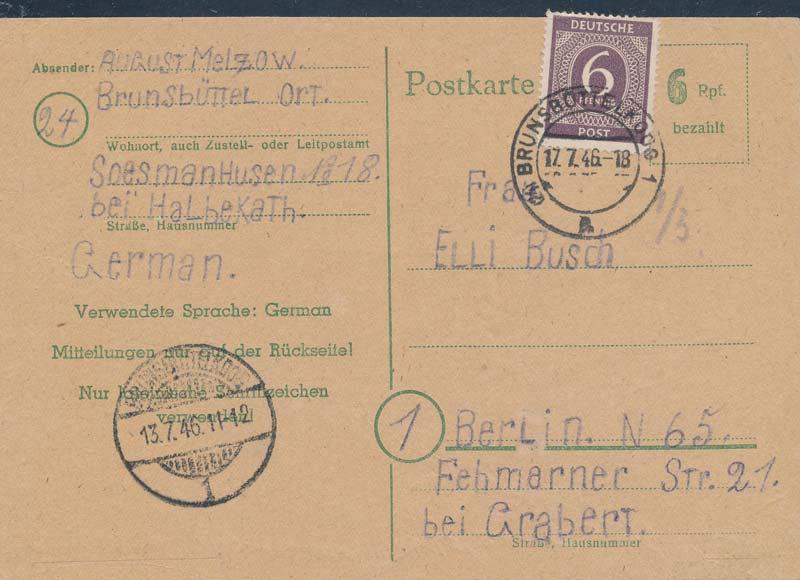 Absender: August Melzow.
Brunsbüttel Ort.
24
Wohnort, auch Zustell- oder Leitpostamt
Soesmanhusen 18.
bei Halbekath.
Straße, Hausnummer
German.
Verwendete Sprache: German
Mitteilungen nur auf der Rückseite!
Nur lateinische Schriftzeichen
verwenden!
13.7.46.11-12
1
Postkarte
DEUTSCHE
6
PFENNIG
POST
6 Rpf.
bezahlt
BRUNSBÜTTELKOOG 1
17.7.46.-18
a
Frau
1/3
Elli Busch
1 Berlin. N 65.
Fehmarner Str. 21.
bei Grabert.
Straße, Hausnummer